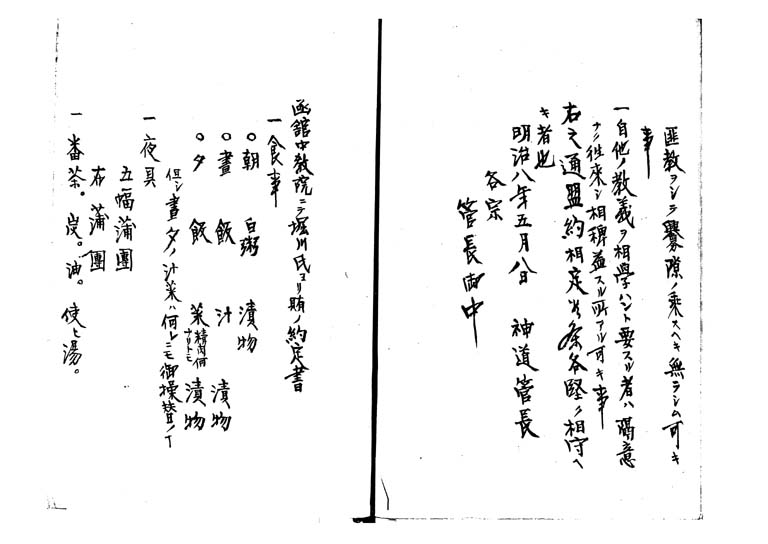 匪教ヲシテ釁隙ノ乗スヘキ無ラシム可キ
事
一自他ノ教義ヲ相學ハント要スル者ハ隔意
ナク往来シ相稗益スル所アル可キ事
右之通盟約相定候条各堅ク相守ヘ
キ者也
明治八年五月八日　神道管長
各宗
管長両中
函舘中教院ニテ堀川氏ヨリ賄ノ約定書
一食事
○朝　白粥　漬物
○晝　飯　汁　漬物
○夕　飯　菜 精肉何ナリトモ 漬物
但シ晝夕ノ汁菜ハ何レニモ御操替ノコト
一夜具
五幅蒲團
布蒲團
一番茶。炭。油。使ヒ湯。